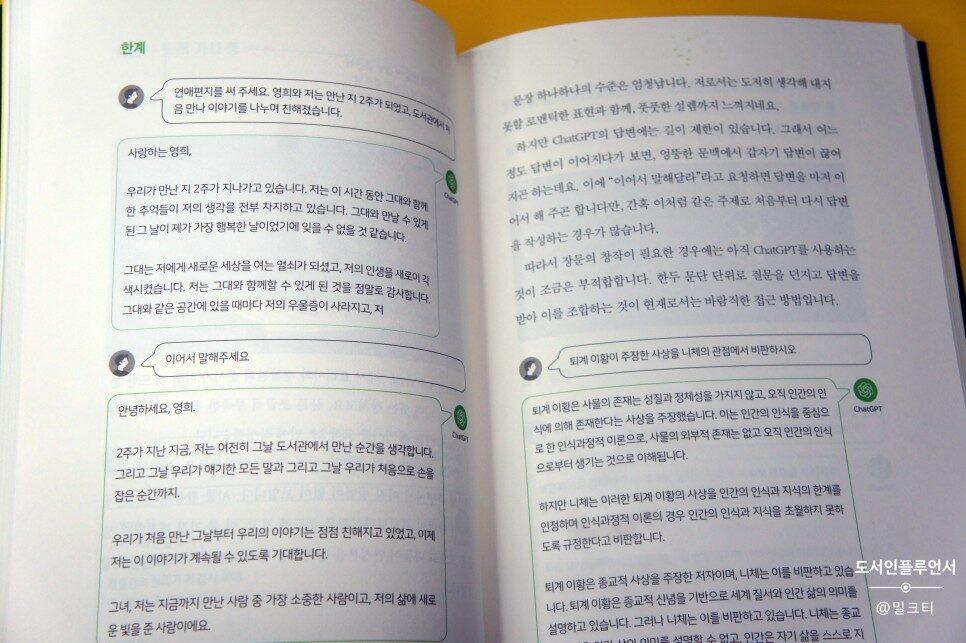 한계
연애편지를 써 주세요. 영희와 저는 만난 지 2주가 되었고, 도서관에서 처
음 만나 이야기를 나누며 친해졌습니다.
사랑하는 영희,
우리가 만난 지 2주가 지나가고 있습니다. 저는 이 시간 동안 그대와 함께
한 추억들이 저의 생각을 전부 차지하고 있습니다. 그대와 만날 수 있게
된 그 날이 제가 가장 행복한 날이었기에 잊을 수 없을 것 같습니다.
그대는 저에게 새로운 세상을 여는 열쇠가 되셨고, 저의 인생을 새로이 각
색시켰습니다. 저는 그대와 함께할 수 있게 된 것을 정말로 감사합니다.
그대와 같은 공간에 있을 때마다 저의 우울증이 사라지고, 저
ChatGPT
이어서 말해주세요
안녕하세요, 영희.
2주가 지난 지금, 저는 여전히 그날 도서관에서 만난 순간을 생각합니다.
그리고 그날 우리가 얘기한 모든 말과 그리고 그날 우리가 처음으로 손을
잡은 순간까지.
우리가 처음 만난 그날부터 우리의 이야기는 점점 친해지고 있었고, 이제
저는 이 이야기가 계속될 수 있도록 기대합니다.
그녀, 저는 지금까지 만난 사람 중 가장 소중한 사람이고, 저의 삶에 새로
운 빛을 준 사람이에요.
ChatGPT
문장 하나하나의 수준은 엄청납니다. 저로서는 도저히 생각해 내지
못할 로맨틱한 표현과 함께, 풋풋한 설렘까지 느껴지네요.
하지만 ChatGPT의 답변에는 길이 제한이 있습니다. 그래서 어느
정도 답변이 이어지다가 보면, 엉뚱한 문맥에서 갑자기 답변이 끊어
지곤 하는데요. 이에 “이어서 말해달라”라고 요청하면 답변을 마저 이
어서 해 주곤 합니다만, 간혹 이처럼 같은 주제로 처음부터 다시 답변
을 작성하는 경우가 많습니다.
따라서 장문의 창작이 필요한 경우에는 아직 ChatGPT를 사용하는
것이 조금은 부적합합니다. 한두 문단 단위로 질문을 던지고 답변을
받아 이를 조합하는 것이 현재로서는 바람직한 접근 방법입니다.
퇴계 이황이 주장한 사상을 니체의 관점에서 비판하시오
퇴계 이황은 사물의 존재는 성질과 정체성을 가지지 않고, 오직 인간의 인
식에 의해 존재한다는 사상을 주장했습니다. 이는 인간의 인식을 중심으
로 한 인식과정적 이론으로, 사물의 외부적 존재는 없고 오직 인간의 인식
으로부터 생기는 것으로 이해됩니다.
하지만 니체는 이러한 퇴계 이황의 사상을 인간의 인식과 지식의 한계를
인정하며 인식과정적 이론의 경우 인간의 인식과 지식을 초월하지 못하
도록 규정한다고 비판합니다.
퇴계 이황은 종교적 사상을 주장한 저자이며, 니체는 이를 비판하고 있습
니다. 퇴계 이황은 종교적 신념을 기반으로 세계 질서와 인간 삶의 의미를
설명하고 있습니다. 그러나 니체는 이를 비판하고 있습니다. 니체는 종교
ChatGPT
도서인플루언서
@밀크티